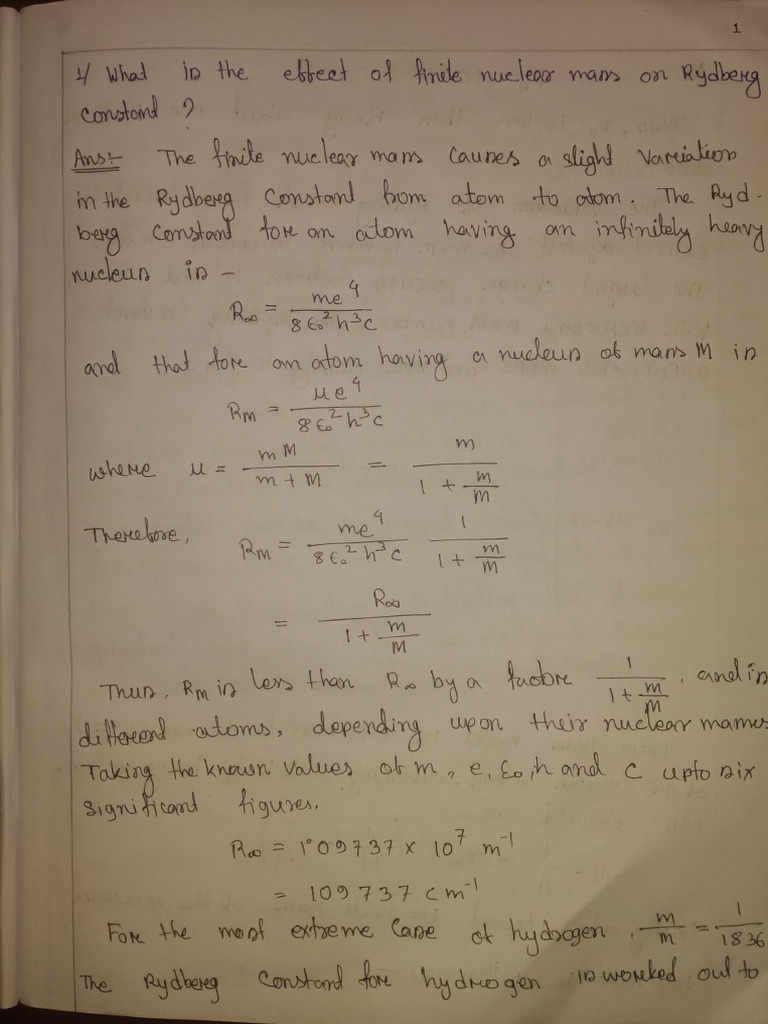 1
1/ What is the effect of finite nuclear mass on Rydberg
constant ?
Ans:- The finite nuclear mass causes a slight vareiation
in the Rydbereg Constant from atom to atom. The Ryd-
bereg Constant fore an atom having an infinitely heavy
nucleus is -
R∞ = me⁴ / 8ε₀²h³c
and that fore an atom having a nucleus of mass M is
R_M = μe⁴ / 8ε₀²h³c
where μ = mM / (m + M) = m / (1 + m/M)
Therefore, R_M = me⁴ / 8ε₀²h³c · 1 / (1 + m/M)
= R∞ / (1 + m/M)
Thus, R_M is less than R∞ by a factore 1 / (1 + m/M), and is
different atoms, depending upon their nuclear masses
Taking the known values of m, e, ε₀, h and c upto six
significant figures.
R∞ = 1.09737 × 10⁷ m⁻¹
= 109737 cm⁻¹
Fore the most extreme case of hydrogen, m/M = 1/1836
The Rydbereg Constant fore hydrogen is woreked out to